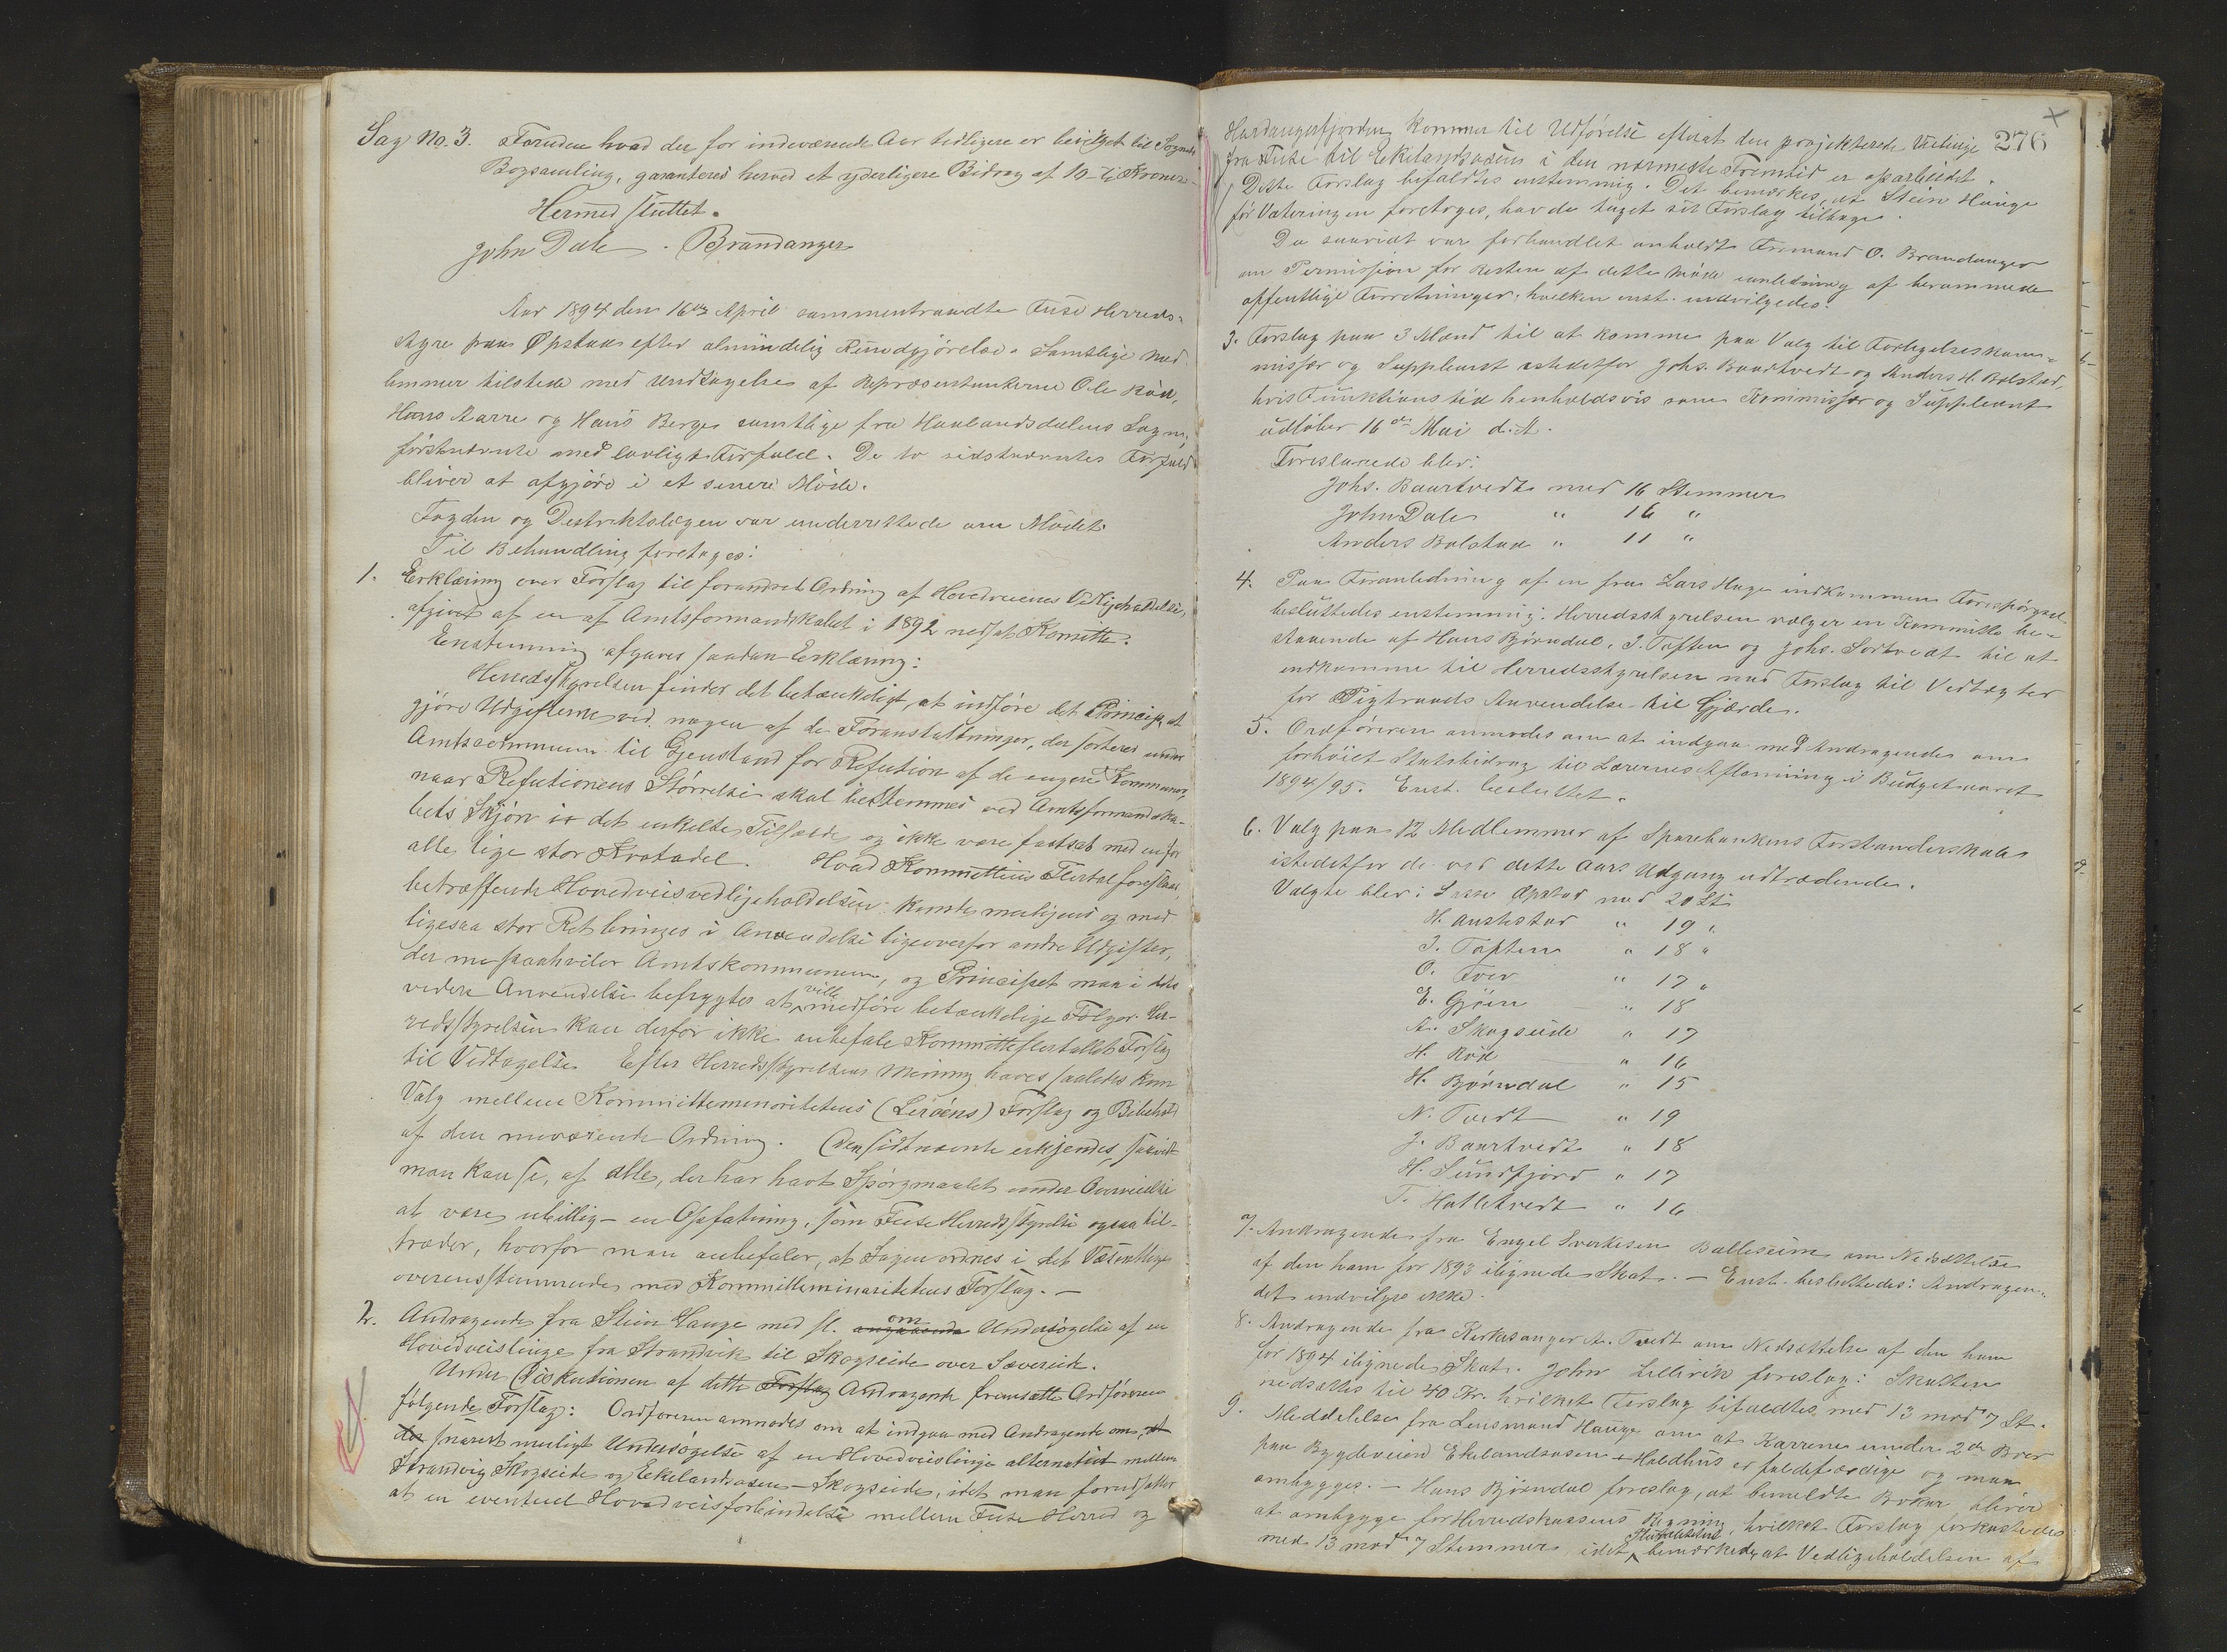 Sag No. 3. Foruden hvad der for indeværende Aar tidligere er bevilget til Sognets
Bogsamling, garanteres herved et yderligere Bidrag af 10 - ti Kroner. -
Hermed sluttet.
John Dale . Brandanger
Aar 1894 den 16de April sammentraadte Fuse Herreds-
styre paa Øpstad efter almindelig Kundgjørelse. Samtlige Med-
lemmer tilstede med Undtagelse af Repræsentanterne Ole Röd,
Hans Aarre og Hans Berge samtlige fra Haalandsdalens Sogn,
förstnævnte med lovligt Forfald. De to sidstnævntes Forfald
bliver at afgjöre i et senere Möde.
Fogden og Distriktslægen var underrettede om Mödet.
Til Behandling foretoges:
1. Erklæring over Forslag til forandret Ordning af Hovedveienes Vedligeholdelse,
afgivet af en af Amtsformandskabet i 1892 nedsat Komitte.
Enstemmig afgaves saadan Erklæring:
Herredsstyrelsen finder det betænkeligt, at indföre det Princip, at
gjöre Udgifterne ved nogen af de Foranstaltninger, der sorterer under
Amtscommunen til Gjenstand for Refusion af de engere Kommuner,
naar Refusionens Störrelse skal bestemmes ved Amtsformandska-
bets Skjön i det enkelte Tilfælde og ikke være fastsat med en for
alle lige stor Kvotadel. Hvad Kommitteens Flertal foreslaar,
betræffende Hovedveisvedligeholdelsen kunde muligens og med
ligesaa stor Ret bringes i Anvendelse ligeoverfor andre Udgifter,
der nu paahviler Amtskommunen, og Principet maa i dets
videre Anvendelse befrygtes at ville medföre betænkelige Fölger. Her-
redsstyrelsen kan derfor ikke anbefale Kommitteflertallets Forslag
til Vedtagelse. Efter Herredsstyrelsens Mening haves saaledes kun
Valg mellem Kommitteminoritetens (Leröens) Forslag og Bibehold
af den nuværende Ordning. Den sidstnævnte erkjendes, saavidt
man kan se, af alle, der har havt Spörgmaalet under Overveielse
at være ubillig - en Opfatning, som Fuse Herredsstyrelse ogsaa til-
træder, hvorfor man anbefaler, at Sagen ordnes i det Væsentlige
overensstemmende med Kommitteminoritetens Forslag. -
2. Andragende fra Stein Hauge med fl. angaaende om Undersögelse af en
Hovedveislinge fra Strandvik til Skogseide over Sævereik.
Under Diskutionen af dette Forslag Andragende fremsatte Ordföreren
fölgende Forslag: Ordföreren anmodes om at indgaa med Andragende om, at
der snarest muligt Undersögelse af en Hovedveislinge alternativt mellem
Strandvig Skogseide og Eekelandsosen - Skogseide, idet man forudsætter
at en eventuel Hovedveisforbindelse mellem Fuse Herred og
276
Hardangerfjorden kommer til Udförelse efterat den projekterede Veilinge
fra Fuse til Eekelandsosen i den nærmeste Fremtid er oparbeidet.
Dette Forslag bifaldtes enstemmig. Det bemærkes, at Stein Hauge
för Voteringen foretoges, havde taget sit Forslag tilbage.
Da saavidt var forhandlet anholdt Formand O. Brandanger
om Permission for Resten af dette Möde i anledning af berammede
offentlige Forretninger, hvilken enst. indvilgedes.
3. Forslag paa 3 Mænd til at komme paa Valg til Forligelseskom-
missær og Suppleant istedetfor Johs. Baartvedt og Anders H. Bolstad,
hvis Funktionstid henholdsvis som Kommissær og Suppleant
udlöber 16de Mai d. A.
Foreslaaede blev:
Johs. Baartvedt med 16 Stemmer
John Dale " 16 "
Anders Bolstad " 11 "
4. Paa Foranledning af en fra Lars Hage indkommen Forespörgsel
besluttedes enstemmig: Herredsstyrelsen vælger en Kommitte be-
staaende af Hans Björndal, I. Toften og Johs. Sortvedt til at
indkomme til Herredsstyrelsen med Forslag til Vedtægter
for Pigtraads Anvendelse til Gjærde.
5. Ordföreren anmodes om at indgaa med Andragende om
forhöiet Statsbidrag til Lærernes Aflönning i Budgetaaret
1894/95. Enst. besluttet.
6. Valg paa 12 Medlemmer af Sparebankens Forstanderskab
istedetfor de ved dette Aars Udgang udtrædende.
Valgte blev: Lasse Øpstad med 20 St.
H. Austestad " 19 "
I. Toften " 18 "
O. Tver " 17 "
E. Gjöen " 18
A. Skogseide " 17
H. Röd " 16
H. Björndal " 15
N. Tvedt " 19
J. Baartvedt " 18
H. Sundfjord " 17
T. Hatletvedt " 16
7. Andragende fra Engel Sverkesen Balleseim om Nedsættelse
af den ham for 1893 ilignede Skat. - Enst. besluttedes: Andragen-
det indvilges ikke.
8. Andragende fra Kirkesanger A. Tvedt om Nedsættelse af den ham
for 1894 ilignede Skat. John Lillevik foreslog: Skatten
nedsættes til 40 Kr. hvilket Forslag bifaldtes med 13 mod 7 St.
9. Meddelelse fra Lensmand Hauge om at Karrene under 2de Broer
paa Bygdeveien Ekelandsosen - Holdhus er faldefærdige og maa
ombygges. - Hans Björndal foreslog, at bemeldte Brokar bliver
at ombygge for Herredskassens Regning, hvilket Forslag forkastedes
med 13 mod 7 Stemmer, idet Pluraliteten bemærkede, at Vedligeholdelsen af